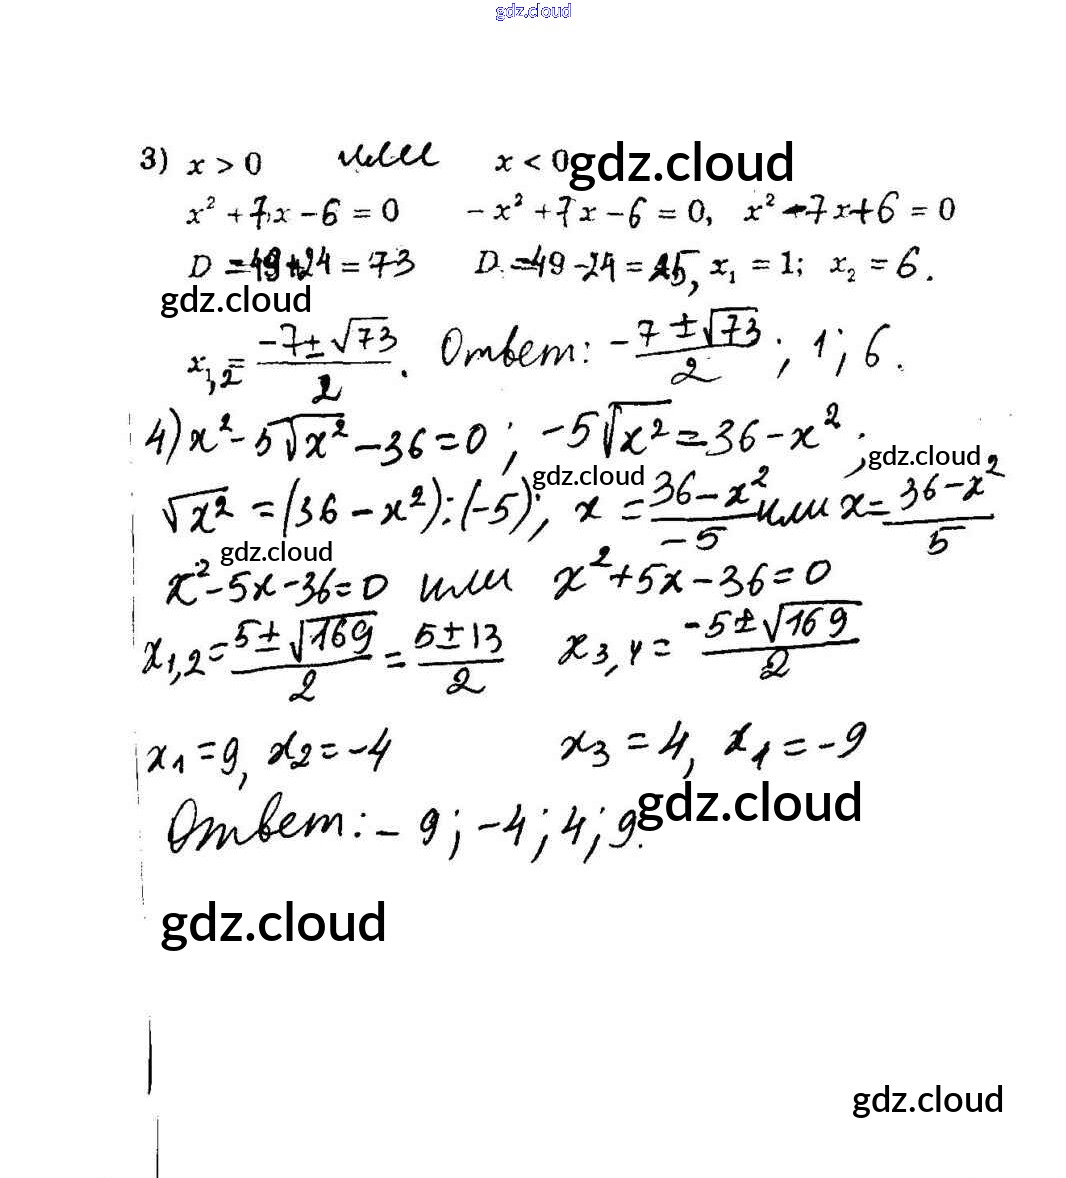 gdz.cloud
3) x > 0 или x < 0 gdz.cloud
x² + 7x − 6 = 0 −x² + 7x − 6 = 0, x² − 7x + 6 = 0
D = 49 + 24 = 73 D = 49 − 24 = 25, x₁ = 1; x₂ = 6.
gdz.cloud
x₁,₂ = (−7 ± √73)/2. Ответ: −(7 ± √73)/2; 1; 6.
4) x² − 5√x² − 36 = 0; −5√x² = 36 − x²;
gdz.cloud gdz.cloud
√x² = (36 − x²):(−5); x = (36 − x²)/−5 или x = (36 − x²)/5
gdz.cloud
x² − 5x − 36 = 0 или x² + 5x − 36 = 0
x₁,₂ = (5 ± √169)/2 = (5 ± 13)/2 x₃,₄ = (−5 ± √169)/2
x₁ = 9, x₂ = −4 x₃ = 4, x₄ = −9
Ответ: −9; −4; 4; 9. gdz.cloud
gdz.cloud
gdz.cloud